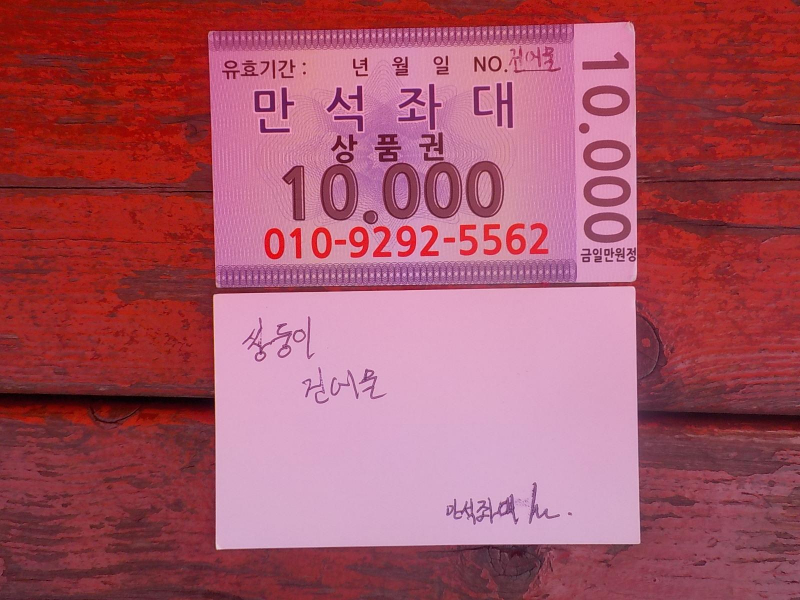 유효기간 : 년 월 일 NO. 건어물
만석좌대
상품권
10.000
010-9292-5562
10.000
금일만원정
쌍둥이
건어물
만석좌대